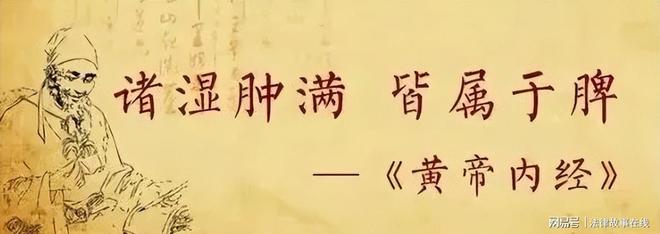 诸湿肿满 皆属于脾
—《黄帝内经》
网易号 | 法律故事在线